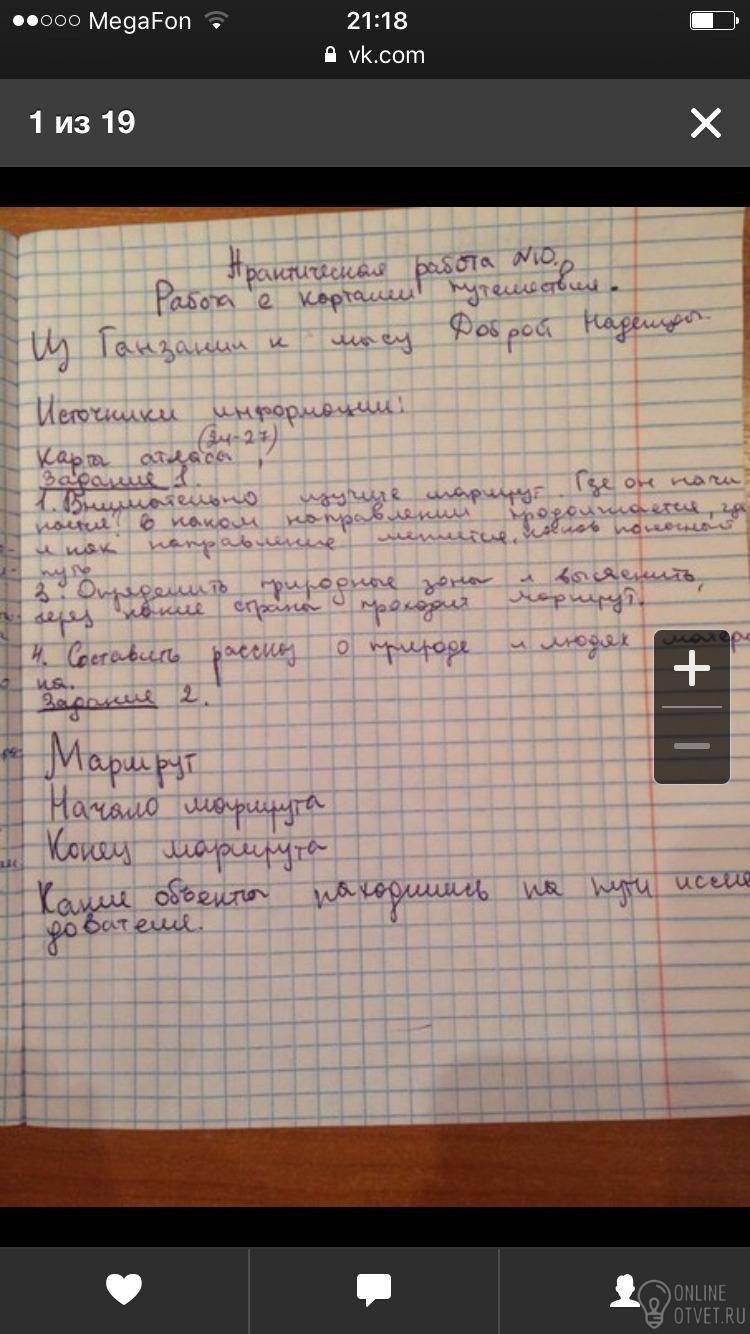 MegaFon 21:18
vk.com
1 из 19
Практическая работа №10.
Работа с картами путешествия.
Из Танзании к мысу Доброй Надежды.
Источники информации:
(24-27)
Карта атласа,
Задание 1.
1. Внимательно изучите маршрут. Где он начи
в каком направлении продолжается, где
и как направление меняется, каков конечный
путь
3. Определить природные зоны и выяснить,
через какие страны проходит маршрут.
4. Составить рассказ о природе и людях матери
ка.
Задание 2.
Маршрут
Начало маршрута
Конец маршрута
Какие объекты находились на пути иссле
дователя.
ONLINE
OTVET.RU